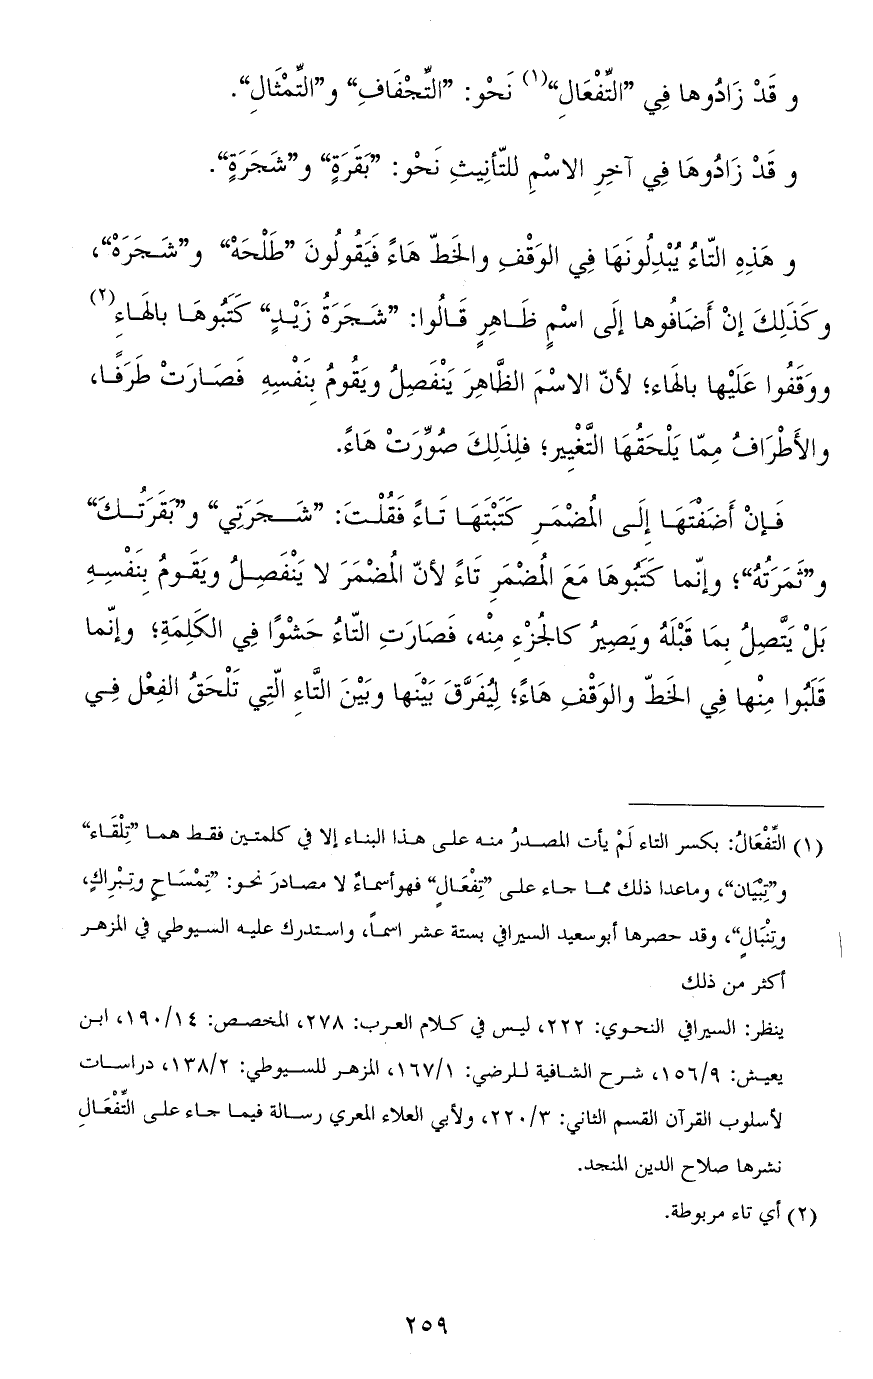 و قَدْ زَادُوها فِي ”التِّفْعَالِ“(١) نَحْو: ”التِّجْفَافِ“ و”التِّمْثَالِ“.
و قَدْ زَادُوهَا فِي آخِرِ الاسْمِ للتّأنِيثِ نَحْوِ: ”بَقَرَةٍ“ و”شَجَرَةٍ“.
و هَذِهِ التّاءُ يُبْدِلُونَهَا فِي الوَقْفِ والخَطّ هَاءً فَيَقُولُونَ ”طَلْحَهْ“ و”شَجَرَهْ“،
وكَذَلِكَ إنْ أَضَافُوها إلَى اسْمٍ ظَاهِرٍ قَالُوا: ”شَجَرَةُ زَيْدٍ“ كَتَبُوهَا بالهَاءِ(٢)
ووَقَفُوا عَلَيْها بالهَاء؛ لأنّ الاسْمَ الظَّاهِرَ يَنْفَصِلُ ويَقُومُ بِنَفْسِهِ فَصَارَتْ طَرَفًا،
والأَطْرَافُ مِمّا يَلْحَقُهَا التَّغْيِير؛ فلِذَلِكَ صُوِّرَتْ هَاءً.
فَإنْ أضَفْتَهَا إلَى المُضْمَرِ كَتَبْتَهَا تَاءً فَقُلْتَ: ”شَجَرَتِي“ و”بَقَرَتُكَ“
و”ثَمَرَتُهُ“؛ وإنّما كَتَبُوهَا مَعَ المُضْمَرِ تَاءً لأنّ المُضْمَرَ لا يَنْفَصِلُ ويَقَومُ بِنَفْسِهِ
بَلْ يَتَّصِلُ بِمَا قَبْلَهُ ويَصِيرُ كالجُزْءِ مِنْه، فَصَارَتِ التّاءُ حَشْوًا فِي الكَلِمَةِ؛ وإنّما
قَلَبُوا مِنْها فِي الخَطّ والوَقْفِ هَاءً؛ لِيُفَرَّقَ بَيْنَها وبَيْنَ التَّاءِ الّتِي تَلْحَقُ الفِعْل فِي
(١) التِّفْعَالُ: بكسر التاء لَمْ يأت المصدرُ منه على هذا البناء إلا في كلمتين فقط هما ”تِلْقَاء“
و”تِبْيَان“، وماعدا ذلك مما جاء على ”تِفْعَالٍ“ فهوأسماءٌ لا مصادرَ نحو: ”تِمْسَاحٍ وتِبْراكٍ،
وتِنْبَالٍ“، وقد حصرها أبوسعيد السيرافي بستة عشر اسماً، واستدرك عليه السيوطي في المزهر
أكثر من ذلك
ينظر: السيرافي النحوي: ٢٢٢، ليس في كلام العرب: ٢٧٨، المخصص: ١٩٠/١٤، ابن
يعيش: ١٥٦/٩، شرح الشافية للرضي: ١٦٧/١، المزهر للسيوطي: ١٣٨/٢، دراسات
لأسلوب القرآن القسم الثاني: ٢٢٠/٣، ولأبي العلاء المعري رسالة فيما جاء على التِّفْعَالِ
نشرها صلاح الدين المنجد.
(٢) أي تاء مربوطة.
٢٥٩